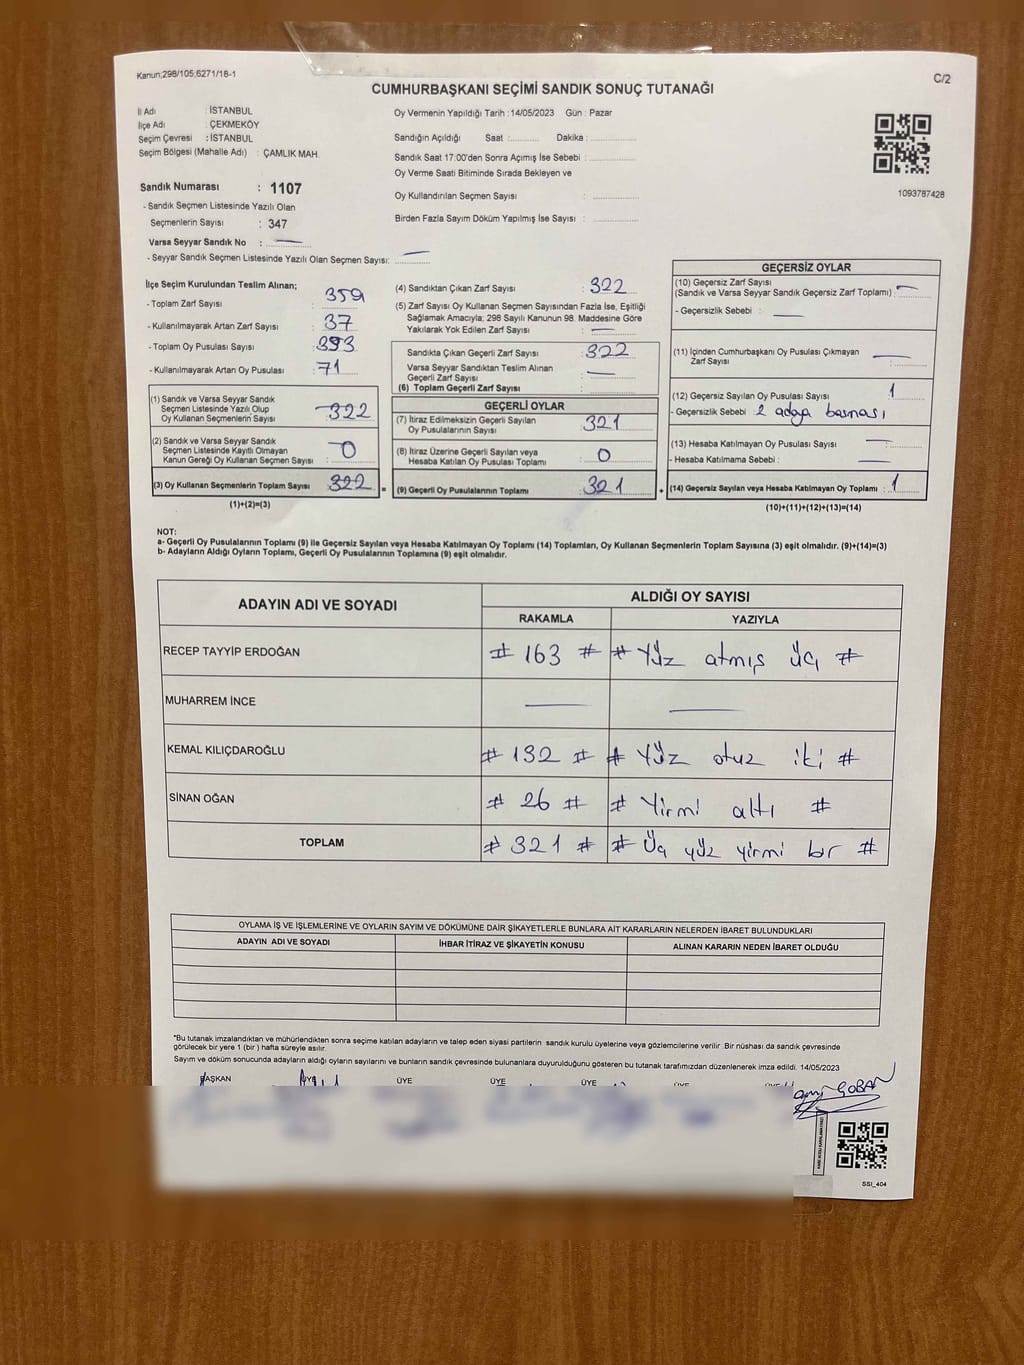 Kanun;298/105;6271/18-1
C/2
CUMHURBAŞKANI SEÇİMİ SANDIK SONUÇ TUTANAĞI
İl Adı : İSTANBUL
İlçe Adı : ÇEKMEKÖY
Seçim Çevresi : İSTANBUL
Seçim Bölgesi (Mahalle Adı) : ÇAMLIK MAH.
Sandık Numarası : 1107
- Sandık Seçmen Listesinde Yazılı Olan
Seçmenlerin Sayısı : 347
Varsa Seyyar Sandık No : —
- Seyyar Sandık Seçmen Listesinde Yazılı Olan Seçmen Sayısı: —
Oy Vermenin Yapıldığı Tarih : 14/05/2023 Gün : Pazar
Sandığın Açıldığı Saat :........... Dakika :...........
Sandık Saat 17:00'den Sonra Açımış İse Sebebi :...........
Oy Verme Saati Bitiminde Sırada Bekleyen ve
Oy Kullandırılan Seçmen Sayısı :...........
Birden Fazla Sayım Döküm Yapılmış İse Sayısı :...........
1093787428
İlçe Seçim Kurulundan Teslim Alınan;
- Toplam Zarf Sayısı : 359
- Kullanılmayarak Artan Zarf Sayısı : 37
- Toplam Oy Pusulası Sayısı : 393
- Kullanılmayarak Artan Oy Pusulası : 71
(1) Sandık ve Varsa Seyyar Sandık
Seçmen Listesinde Yazılı Olup
Oy Kullanan Seçmenlerin Sayısı : 322
(2) Sandık ve Varsa Seyyar Sandık
Seçmen Listesinde Kayıtlı Olmayan
Kanun Gereği Oy Kullanan Seçmen Sayısı : 0
(3) Oy Kullanan Seçmenlerin Toplam Sayısı : 322
(1)+(2)=(3)
(4) Sandıktan Çıkan Zarf Sayısı : 322
(5) Zarf Sayısı Oy Kullanan Seçmen Sayısından Fazla İse, Eşitliği
Sağlamak Amacıyla; 298 Sayılı Kanunun 98. Maddesine Göre
Yakılarak Yok Edilen Zarf Sayısı : —
Sandıkta Çıkan Geçerli Zarf Sayısı : 322
Varsa Seyyar Sandıktan Teslim Alınan
Geçerli Zarf Sayısı : —
(6) Toplam Geçerli Zarf Sayısı :
GEÇERLİ OYLAR
(7) İtiraz Edilmeksizin Geçerli Sayılan
Oy Pusulalarının Sayısı : 321
(8) İtiraz Üzerine Geçerli Sayılan veya
Hesaba Katılan Oy Pusulası Toplamı : 0
(9) Geçerli Oy Pusulalarının Toplamı : 321
GEÇERSİZ OYLAR
(10) Geçersiz Zarf Sayısı
(Sandık ve Varsa Seyyar Sandık Geçersiz Zarf Toplamı) : —
- Geçersizlik Sebebi : —
(11) İçinden Cumhurbaşkanı Oy Pusulası Çıkmayan
Zarf Sayısı : —
(12) Geçersiz Sayılan Oy Pusulası Sayısı : 1
- Geçersizlik Sebebi : 2 adaya basması
(13) Hesaba Katılmayan Oy Pusulası Sayısı : —
- Hesaba Katılmama Sebebi : —
(14) Geçersiz Sayılan veya Hesaba Katılmayan Oy Toplamı : 1
(10)+(11)+(12)+(13)=(14)
NOT:
a- Geçerli Oy Pusulalarının Toplamı (9) ile Geçersiz Sayılan veya Hesaba Katılmayan Oy Toplamı (14) Toplamları, Oy Kullanan Seçmenlerin Toplam Sayısına (3) eşit olmalıdır. (9)+(14)=(3)
b- Adayların Aldığı Oyların Toplamı, Geçerli Oy Pusulalarının Toplamına (9) eşit olmalıdır.
ADAYIN ADI VE SOYADI ALDIĞI OY SAYISI
RAKAMLA YAZIYLA
RECEP TAYYİP ERDOĞAN # 163 # # Yüz atmış üç #
MUHARREM İNCE — —
KEMAL KILIÇDAROĞLU # 132 # # Yüz otuz iki #
SİNAN OĞAN # 26 # # Yirmi altı #
TOPLAM # 321 # # Üç yüz yirmi bir #
OYLAMA İŞ VE İŞLEMLERİNE VE OYLARIN SAYIM VE DÖKÜMÜNE DAİR ŞİKAYETLERLE BUNLARA AİT KARARLARIN NELERDEN İBARET BULUNDUKLARI
ADAYIN ADI VE SOYADI İHBAR İTİRAZ VE ŞİKAYETİN KONUSU ALINAN KARARIN NEDEN İBARET OLDUĞU
*Bu tutanak imzalandıktan ve mühürlendikten sonra seçime katılan adayların ve talep eden siyasi partilerin sandık kurulu üyelerine veya gözlemcilerine verilir .Bir nüshası da sandık çevresinde
görülecek bir yere 1 (bir ) hafta süreyle asılır.
Sayım ve döküm sonucunda adayların aldığı oyların sayılarını ve bunların sandık çevresinde bulunanlara duyurulduğunu gösteren bu tutanak tarafımızdan düzenlenerek imza edildi. 14/05/2023
BAŞKAN ÜYE ÜYE ÜYE ÜYE
ÇOBAN
SSI_404